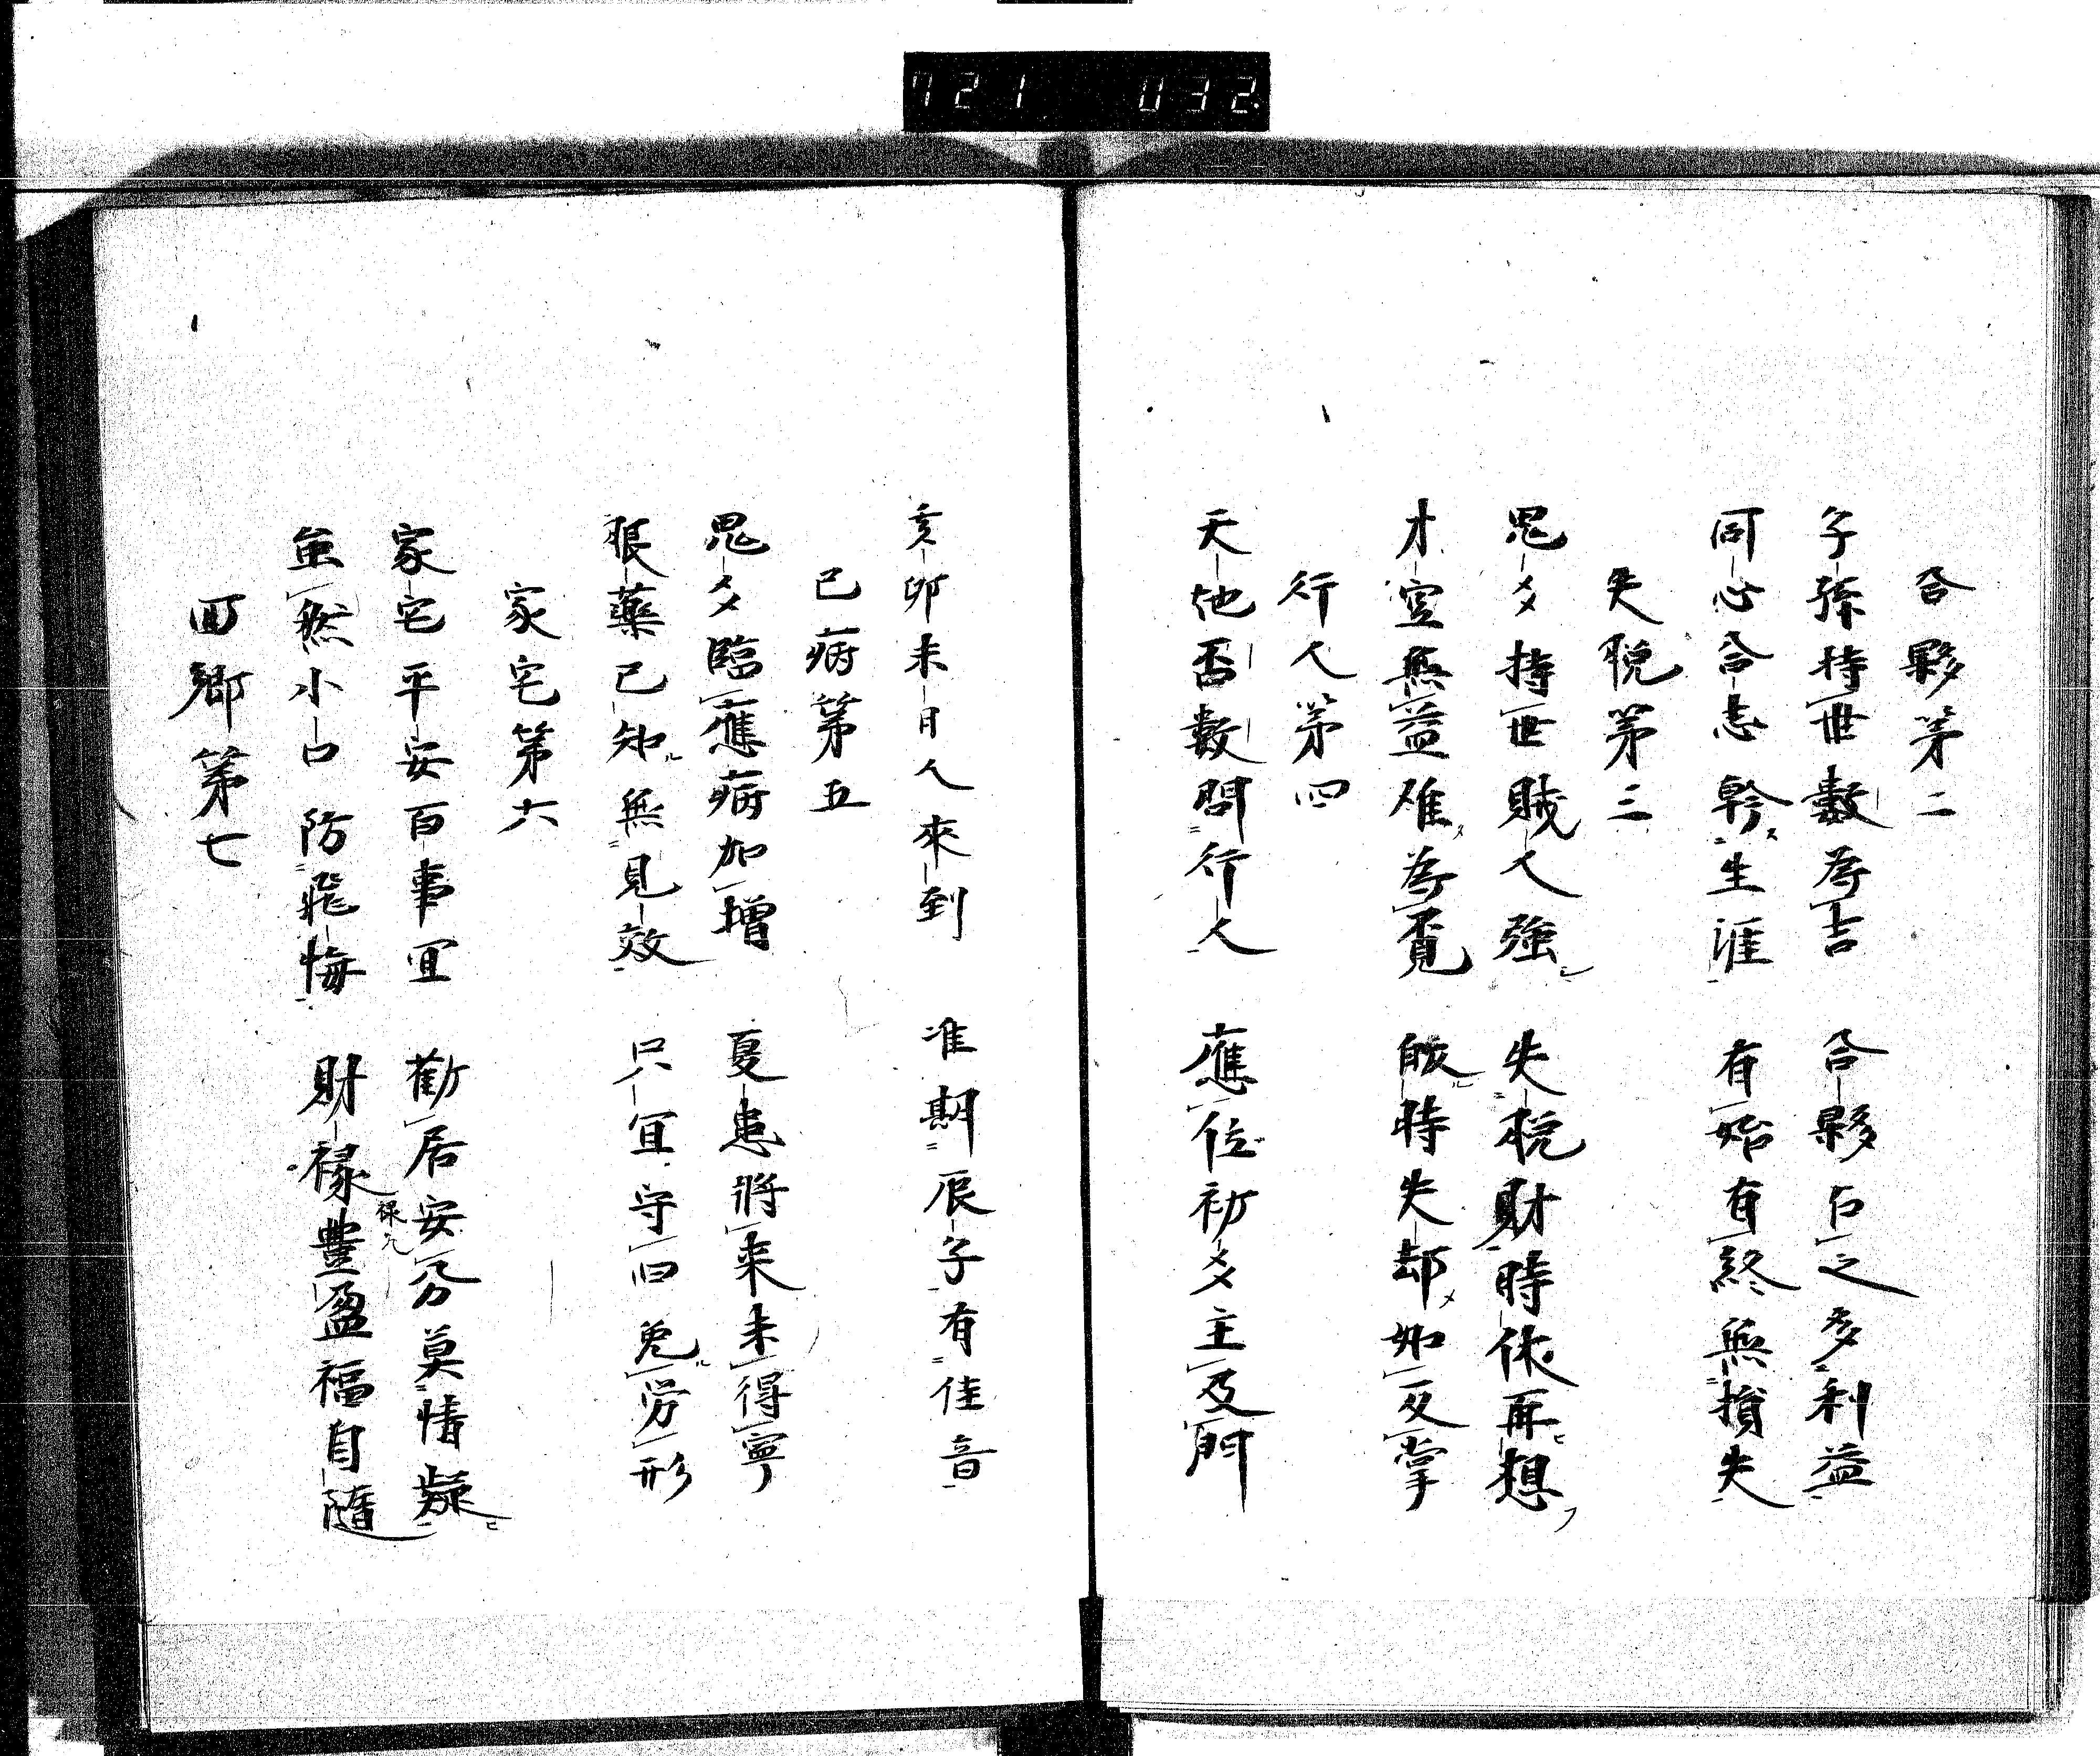 721 032
合夥第二
子孫持世數為吉 合夥占之多利益
同心合志幹生涯 有始有終無損失
失脱第三
鬼爻持世賊人強 失税財時休再想
才空無益难為覔 時失却如反掌
行人第四
天地否數問行人 應位初爻主及門
亥卯未日人來到 准期辰子有佳音
已病第五
鬼爻臨應病加增 夏患將来未得寧
服藥已知無見效 只宜守旧免労形
家宅第六
家宅平安百事宜 勸居安分莫情疑
虽然小口防飛悔 財禄豐盈福自随
禄九
回鄉第七